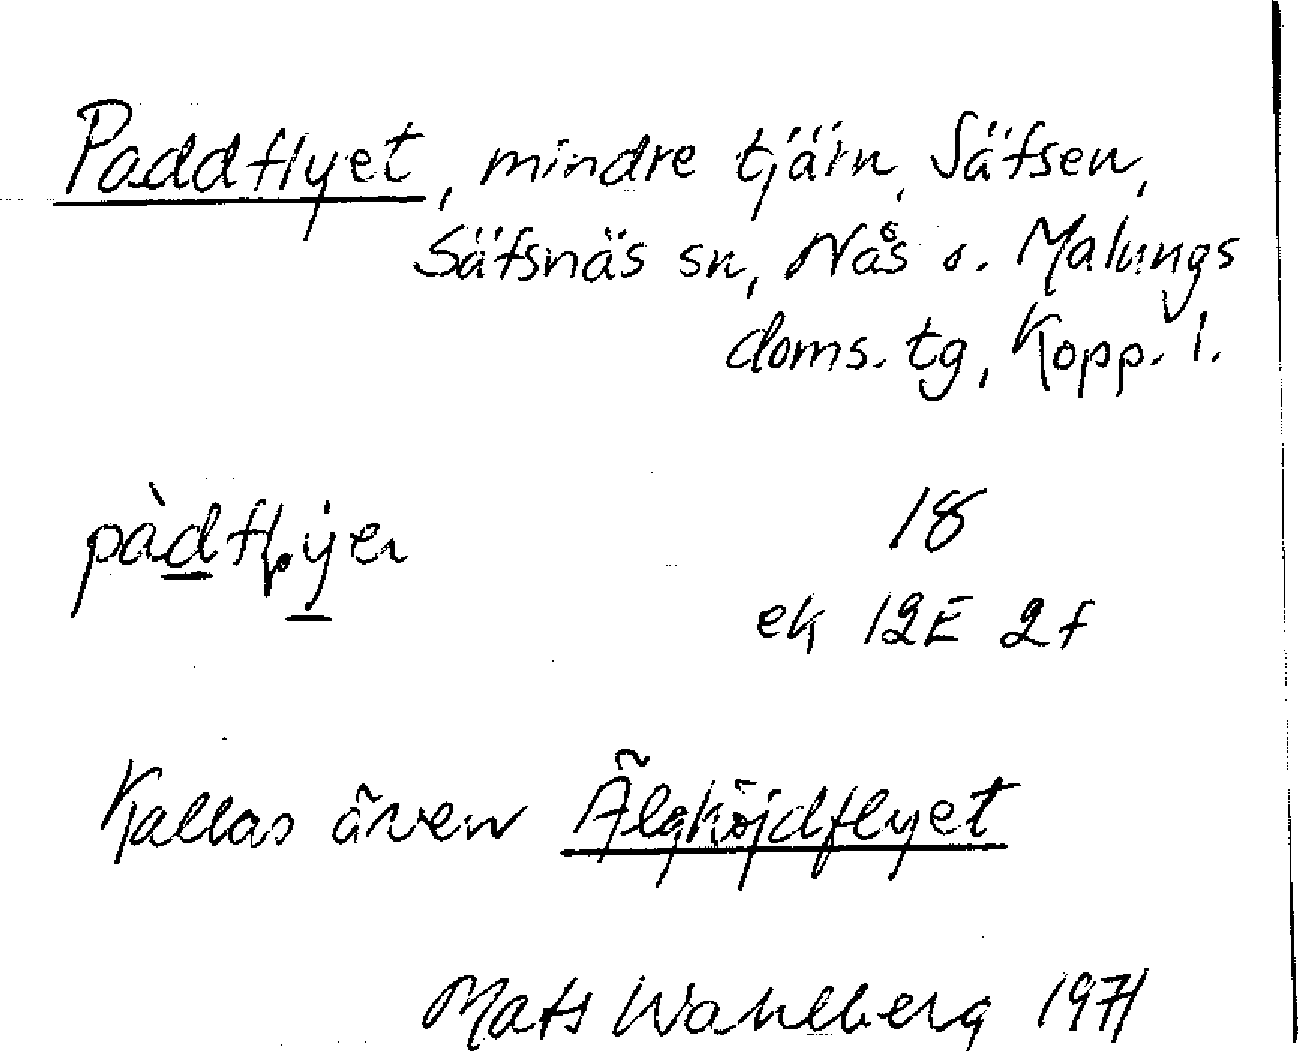 Paddflyet, mindre tjärn, Säfsen,
Säfsnäs sn, Nås o. Malungs
doms. tg, Kopp. l.
pàdflyer 18
ek 12E 2f
Kallas även Älgköjdflyet
Mats Wahlberg 1971